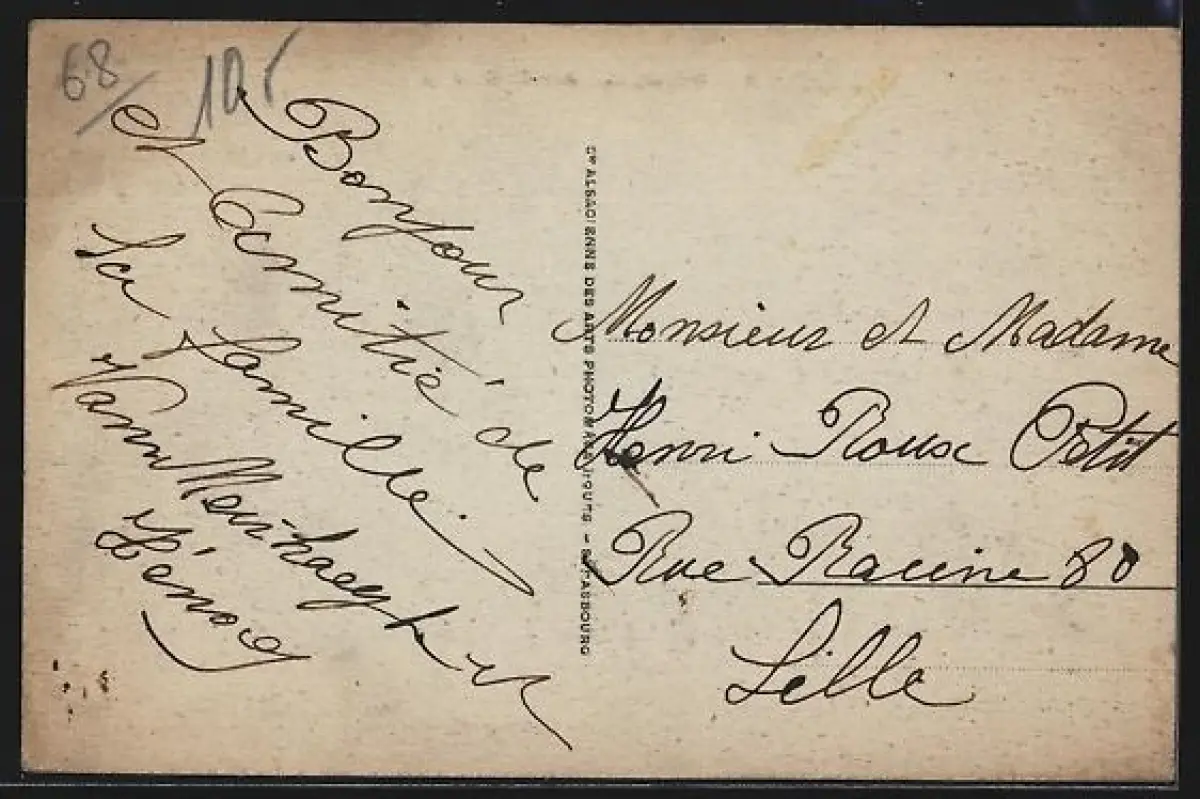 68
10
Bonjour
et Amitié de
la famille
Monsieur et Madame
Henri Roux Petit
Rue Racine 80
Lille
Cie ALSACIENNE DES ARTS PHOTOMÉCANIQUES - STRASBOURG